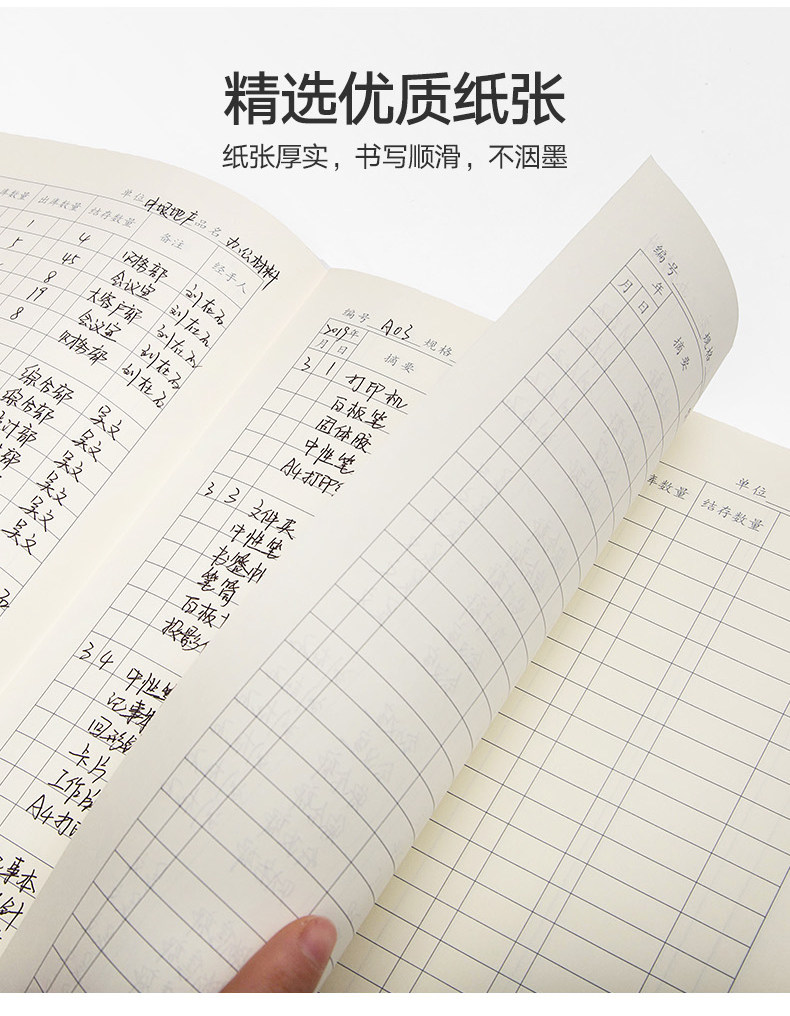 精选优质纸张
纸张厚实，书写顺滑，不洇墨
单位 中垠地产 品名 办公材料
库数量 出库数量 结存数量 备注 经手人
1 4 财务部 刘在石
5 45 会议室 刘在石
8 大客户部 刘在石
19 会议室 刘在石
8 财务部 刘在石
综合部 吴文
综合部 吴文
计部 吴文
部 吴文
吴文
编号 A03 规格
2019年
月 日 摘要
3 1 打印机
白板笔
固体胶
中性笔
A4打印
3 3 文件夹
中性笔
书签
笔筒
白板
投影
3 4 中性笔
记事本
回形
卡片
工作
A4打
事本
编号 规格
年
月 日 摘要
单位
库数量 结存数量